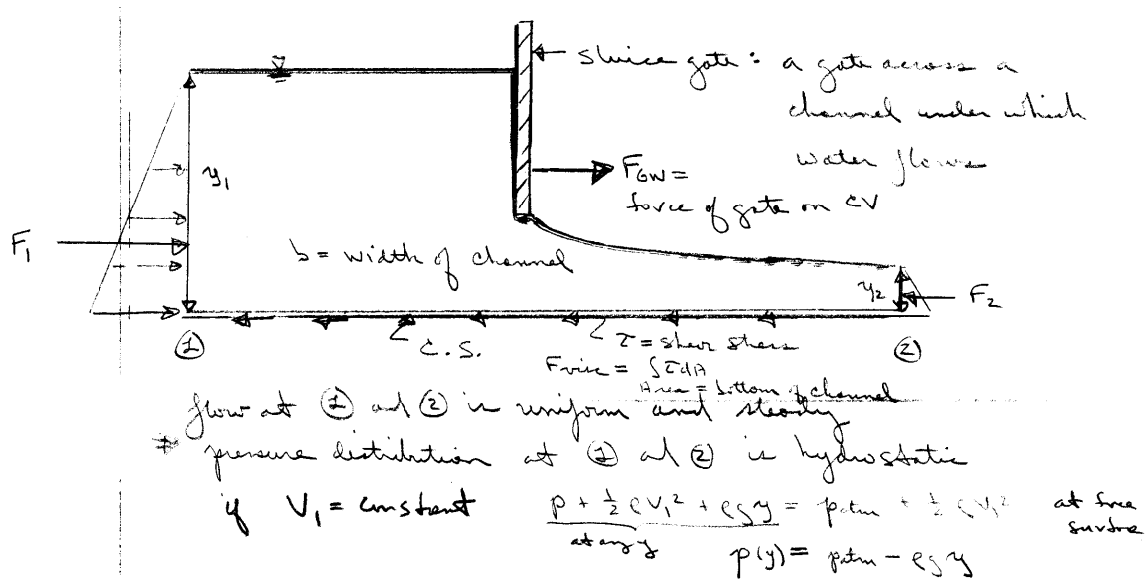 sluice gate: a gate across a
channel under which
water flows
F_GW =
force of gate on CV
y₁
F₁
b = width of channel
y₂
F₂
① C.S. τ = shear stress ②
Fvisc = ∫τdA
Area = bottom of channel
flow at ① and ② is uniform and steady
⇒ pressure distribution at ① and ② is hydrostatic
if V₁ = constant p + ½ρV₁² + ρgy = patm + ½ρV₁² at free surface
at any y
p(y) = patm - ρgy